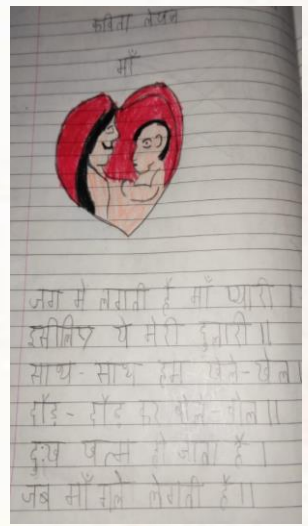 कविता लेखन
माँ
जग मे लगती है माँ प्यारी ।
इसीलिए ये मेरी दुलारी ॥
साथ - साथ हम खेले - खेल ।
दौड़ - दौड़ कर बोले - बोल ॥
दुःख खत्म हो जाता है ।
जब माँ गले लगती है ॥